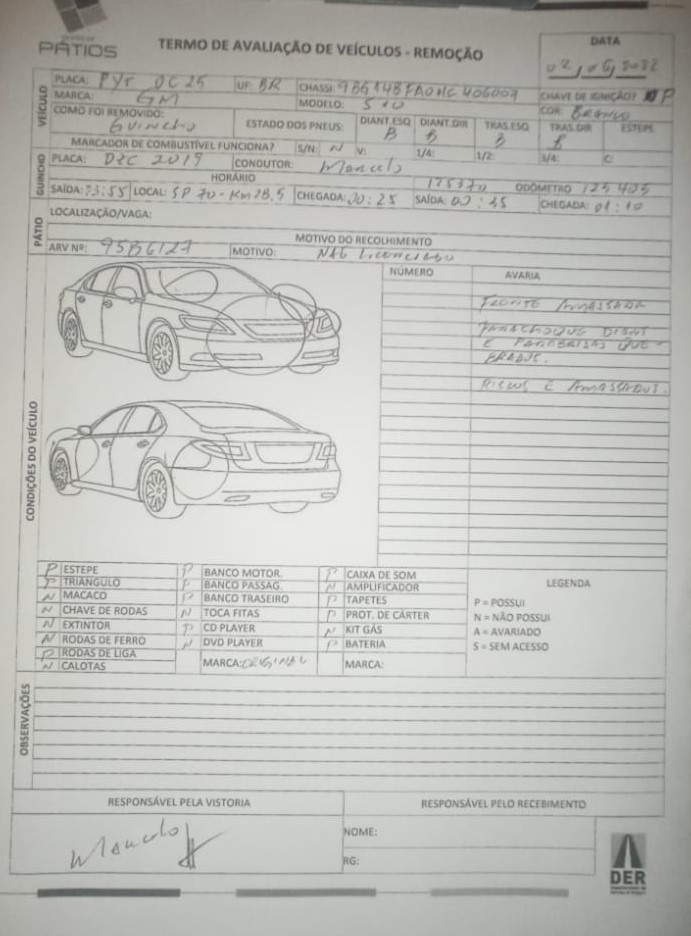 PÁTIOS
TERMO DE AVALIAÇÃO DE VEÍCULOS - REMOÇÃO
DATA
VEÍCULO
PLACA: UF: BR CHASSI:
CHAVE DE IGNIÇÃO? P
MARCA: GM MODELO: S10 COR: BRANCO
COMO FOI REMOVIDO: GUINCHO ESTADO DOS PNEUS: DIANT.ESQ B DIANT.DIR B TRAS.ESQ B TRAS.DIR B ESTEPE
MARCADOR DE COMBUSTÍVEL FUNCIONA? S/N: N V: 1/4: 1/2: 3/4: C:
GUINCHO
PLACA: CONDUTOR: Marcelo
HORÁRIO ODÔMETRO
SAÍDA: 23:55 LOCAL: SP 70 - Km 28,5 CHEGADA: 00:25 SAÍDA: 00:35 CHEGADA: 01:10
PÁTIO
LOCALIZAÇÃO/VAGA:
MOTIVO DO RECOLHIMENTO
ARV Nº: MOTIVO: NÃO Licenciado
CONDIÇÕES DO VEÍCULO
NÚMERO AVARIA
FRENTE AMASSADA
PARACHOQUE DIANT
E PARABRISAS QUE-
BRADO.
RISCOS E AMASSADOS.
P ESTEPE P BANCO MOTOR. P CAIXA DE SOM
P TRIANGULO P BANCO PASSAG. N AMPLIFICADOR
N MACACO P BANCO TRASEIRO P TAPETES
N CHAVE DE RODAS N TOCA FITAS P PROT. DE CÁRTER
N EXTINTOR P CD PLAYER N KIT GÁS
N RODAS DE FERRO N DVD PLAYER P BATERIA
P RODAS DE LIGA MARCA: ORIGINAL MARCA:
N CALOTAS
LEGENDA
P = POSSUI
N = NÃO POSSUI
A = AVARIADO
S = SEM ACESSO
OBSERVAÇÕES
RESPONSÁVEL PELA VISTORIA RESPONSÁVEL PELO RECEBIMENTO
Marcelo
NOME:
RG:
DER